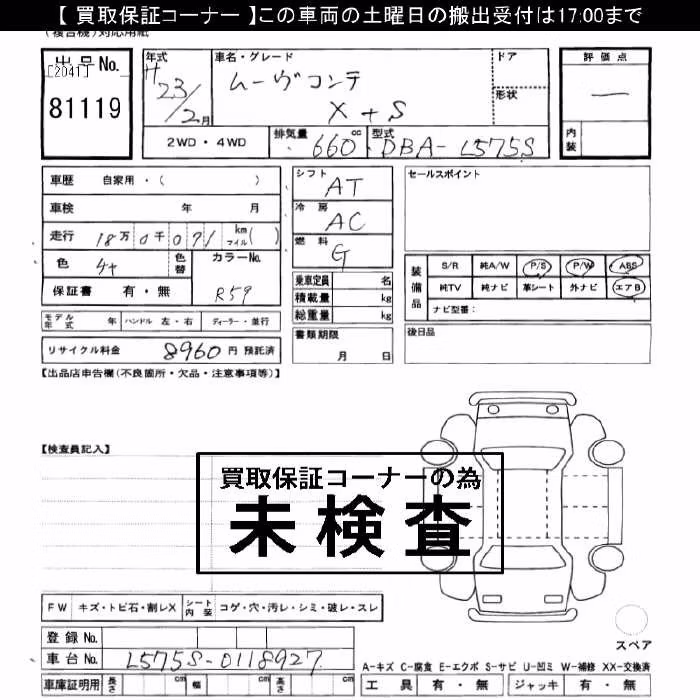 【 買取保証コーナー 】この車両の土曜日の搬出受付は17:00まで
(複合機)対応用紙
出品No.
[2041]
81119
年式
H23/2月
車名・グレード
ムーヴコンテ
X+S
ドア
形状
2WD・4WD
排気量
660 cc
型式
DBA-L575S
評価点
一
内装
車歴 自家用・( )
車検 年 月
走行 18万0千071 km マイル( )
色
色替
カラーNo.
R59
保証書 有・無
モデル年式 年 ハンドル 左・右 ディーラー・並行
リサイクル料金 8960 円 預託済
シフト
AT
冷房
AC
燃料
G
乗車定員 名
積載量 kg
総重量 kg
書類期限
月 日
セールスポイント
装備品
S/R 純A/W P/S P/W ABS
純TV 純ナビ 革シート 外ナビ エアB
ナビ型番:
後日品
【出品店申告欄(不良箇所・欠品・注意事項等)】
【検査員記入】
買取保証コーナーの為
未検査
FW キズ・トビ石・割レX シート内装 コゲ・穴・汚レ・シミ・破レ・スレ
登録No.
車台No. L575S-0118927
車庫証明用 長さ cm 幅 cm 高さ cm
スペア
A-キズ C-腐食 E-エクボ S-サビ U-凹ミ W-補修 XX-交換済
工具 有・無 ジャッキ 有・無